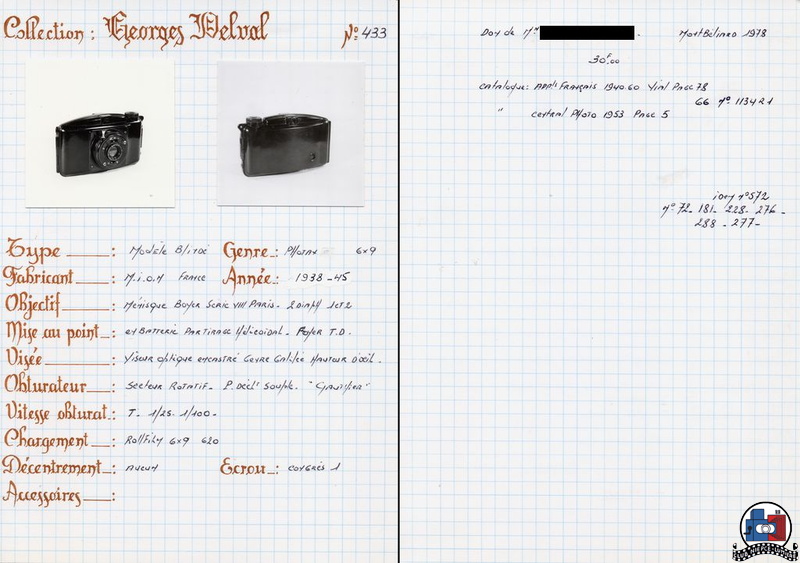 Collection : Georges Delval Nº 433
Type : Modèle Blindé Genre : Photax 6x9
Fabricant : M.I.O.M France Année : 1938-45
Objectif : Ménisque Boyer Serie VIII Paris - 2 diaph 1et2
Mise au point : en Batterie Par tirage Hélicoïdal - Foyer T.D.
Visée : Viseur optique encastré Genre Galilée Hauteur D'œil -
Obturateur : Secteur Rotatif - P. Décl' Souple - "Gauthier"
Vitesse obturat. : T - 1/25 - 1/100 -
Chargement : Rollfilm 6x9 620
Décentrement : Aucun Ecrou : Congrès 1
Accessoires :
Don de Mr - Montbéliard 1978
30F.00
catalogue: APPls Français 1940.60 Vial Page 78
66 nº 1134 R1
" central Photo 1953 Page 5
nº 572
nº 72 - 181 - 228 - 276 -
288 - 277 -